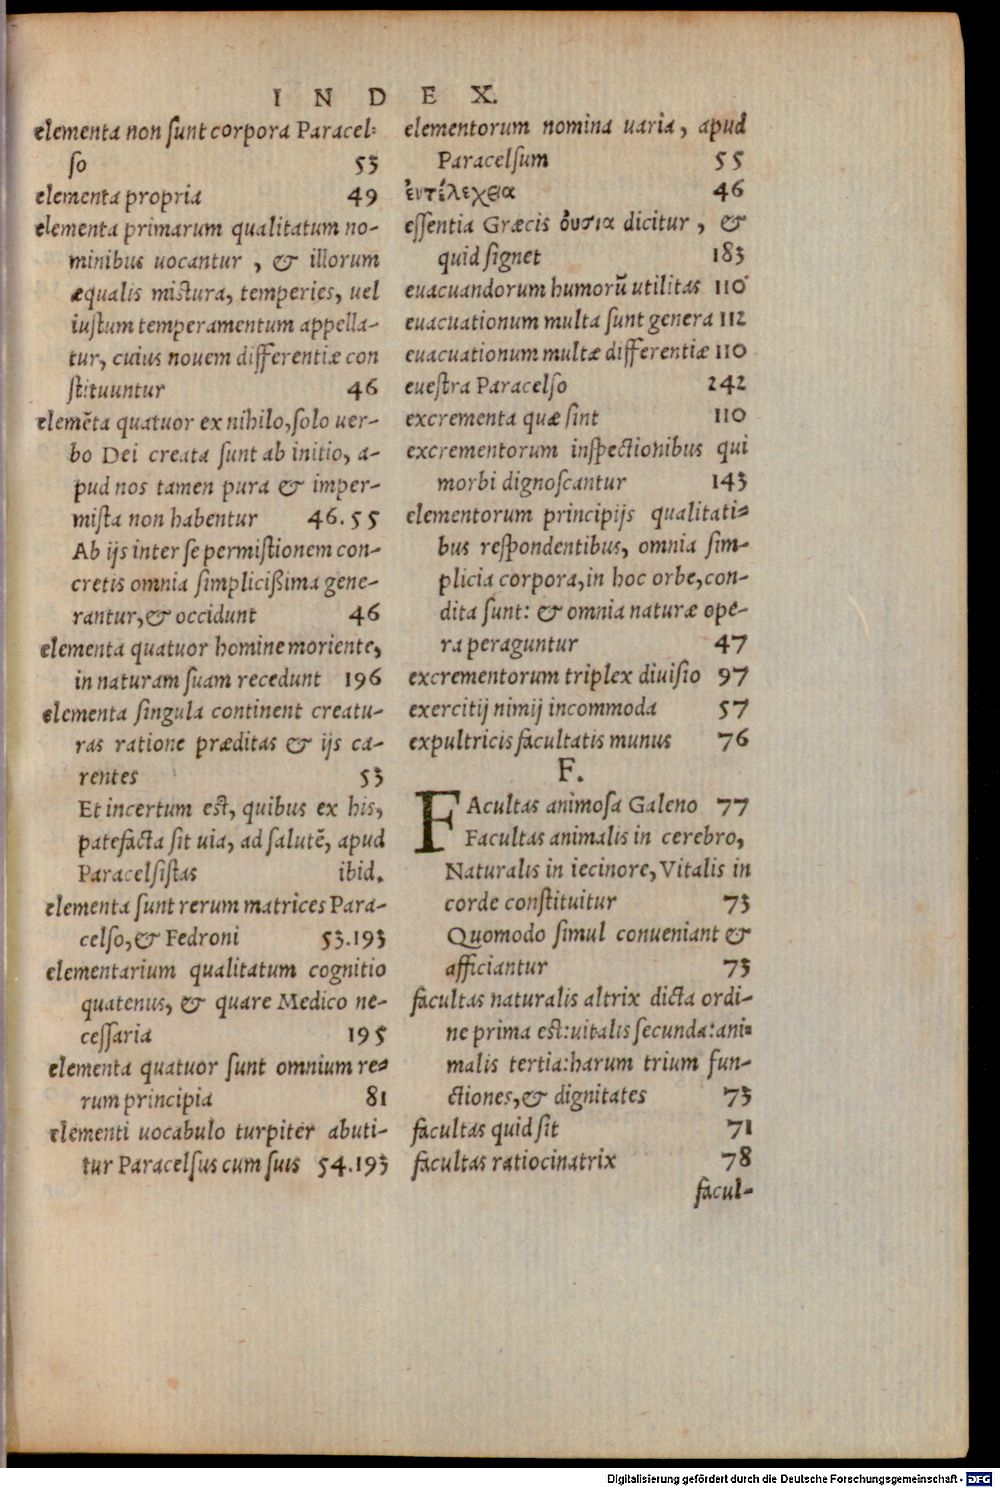 INDEX.
elementa non sunt corpora Paracel-
so 53
elementa propria 49
elementa primarum qualitatum no-
minibus uocantur , & illorum
æqualis mistura, temperies, uel
iustum temperamentum appella-
tur, cuius nouem differentiæ con
stituuntur 46
elemēta quatuor ex nihilo, solo uer-
bo Dei creata sunt ab initio, a-
pud nos tamen pura & imper-
mista non habentur 46.55
Ab ijs inter se permistionem con-
cretis omnia simplicißima gene-
rantur, & occidunt 46
elementa quatuor homine moriente,
in naturam suam recedunt 196
elementa singula continent creatu-
ras ratione præditas & ijs ca-
rentes 53
Et incertum est, quibus ex his,
patefacta sit uia, ad salutē, apud
Paracelsistas ibid.
elementa sunt rerum matrices Para-
celso, & Fedroni 53.193
elementarium qualitatum cognitio
quatenus, & quare Medico ne-
cessaria 195
elementa quatuor sunt omnium re-
rum principia 81
elementi uocabulo turpiter abuti-
tur Paracelsus cum suis 54.193
elementorum nomina uaria, apud
Paracelsum 55
ἐντέλεχεια 46
essentia Græcis ὀυσια dicitur , &
quid signet 183
euacuandorum humorū utilitas 110
euacuationum multa sunt genera 112
euacuationum multæ differentiæ 110
euestra Paracelso 242
excrementa quæ sint 110
excrementorum inspectionibus qui
morbi dignoscantur 143
elementorum principijs qualitati-
bus respondentibus, omnia sim-
plicia corpora, in hoc orbe, con-
dita sunt: & omnia naturæ ope-
ra peraguntur 47
excrementorum triplex diuisio 97
exercitij nimij incommoda 57
expultricis facultatis munus 76
F.
FAcultas animosa Galeno 77
Facultas animalis in cerebro,
Naturalis in iecinore, Vitalis in
corde constituitur 73
Quomodo simul conueniant &
afficiantur 73
facultas naturalis altrix dicta ordi-
ne prima est: uitalis secunda: ani-
malis tertia: harum trium fun-
ctiones, & dignitates 73
facultas quid sit 71
facultas ratiocinatrix 78
facul-
Digitalisierung gefördert durch die Deutsche Forschungsgemeinschaft - DFG